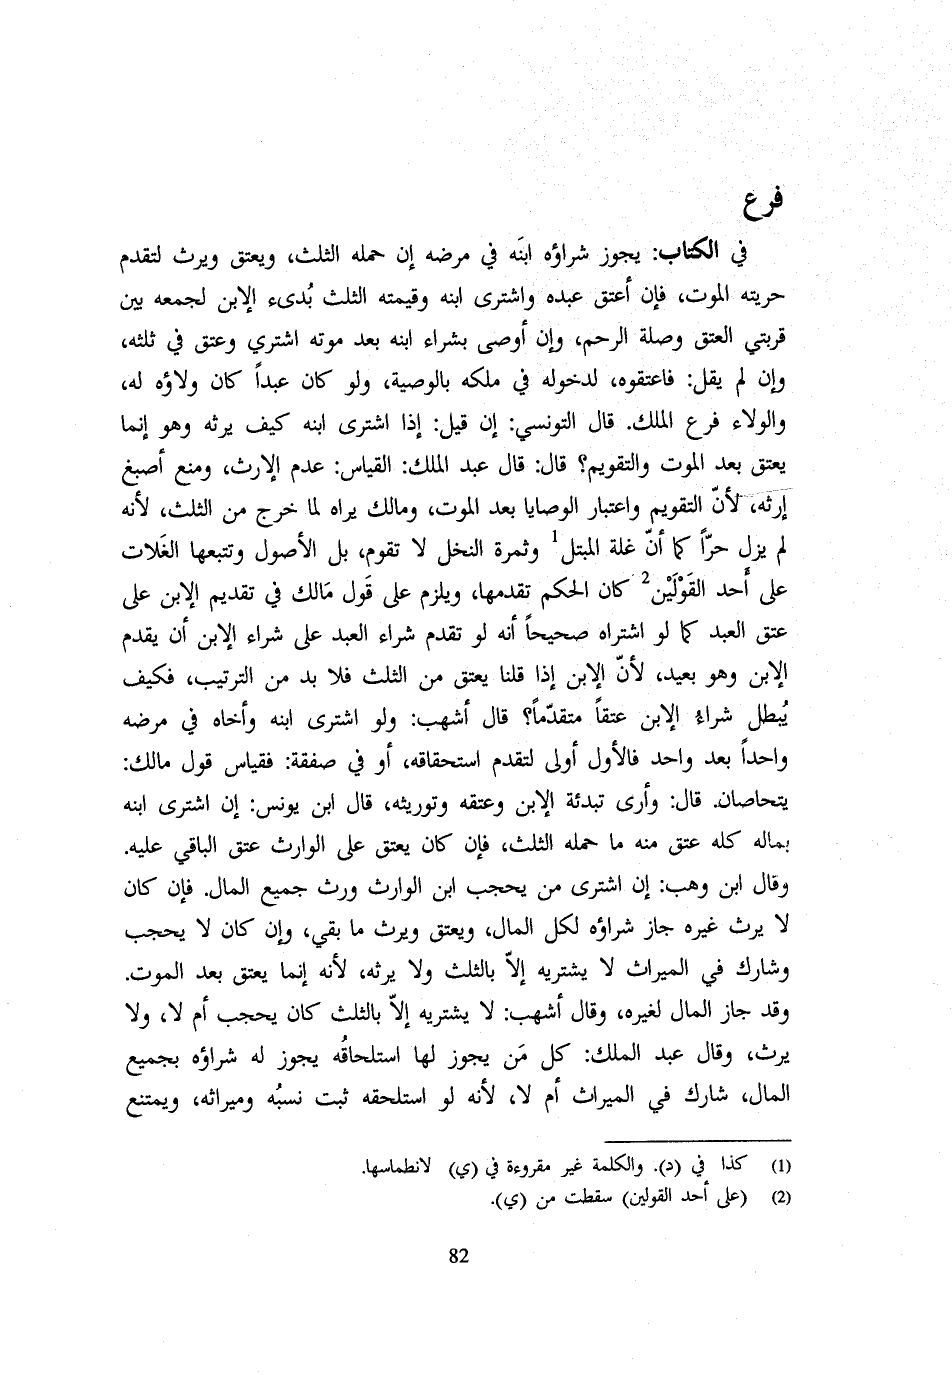 فرع
في الكتاب: يجوز شراؤه ابنَه في مرضه إن حمله الثلث، ويعتق ويرث لتقدم
حريته الموت، فإن أعتق عبده واشترى ابنه وقيمته الثلث بُدىء الإبن لجمعه بين
قربتي العتق وصلة الرحم، وإن أوصى بشراء ابنه بعد موته اشتري وعتق في ثلثه،
وإن لم يقل: فاعتقوه، لدخوله في ملكه بالوصية، ولو كان عبداً كان ولاؤه له،
والولاء فرع الملك. قال التونسي: إن قيل: إذا اشترى ابنه كيف يرثه وهو إنما
يعتق بعد الموت والتقويم؟ قال: قال عبد الملك: القياس: عدم الإرث، ومنع أصبغ
إرثه، لأنّ التقويم واعتبار الوصايا بعد الموت، ومالك يراه لما خرج من الثلث، لأنه
لم يزل حرّاً كما أنّ غلة المبتل1 وثمرة النخل لا تقوم، بل الأصول وتتبعها الغَلات
على أَحد القَوْلَيْن2 كان الحكم تقدمها، ويلزم على قَول مَالك في تقديم الإبن على
عتق العبد كما لو اشتراه صحيحاً أنه لو تقدم شراء العبد على شراء الإبن أن يقدم
الإبن وهو بعيد، لأنّ الإبن إذا قلنا يعتق من الثلث فلا بد من الترتيب، فكيف
يُبطل شراءُ الإبن عتقاً متقدّماً؟ قال أشهب: ولو اشترى ابنه وأخاه في مرضه
واحداً بعد واحد فالأول أولى لتقدم استحقاقه، أو في صفقة: فقياس قول مالك:
يتحاصان. قال: وأرى تبدئة الإبن وعتقه وتوريثه، قال ابن يونس: إن اشترى ابنه
بماله كله عتق منه ما حمله الثلث، فإن كان يعتق على الوارث عتق الباقي عليه.
وقال ابن وهب: إن اشترى من يحجب ابن الوارث ورث جميع المال. فإن كان
لا يرث غيره جاز شراؤه لكل المال، ويعتق ويرث ما بقي، وإن كان لا يحجب
وشارك في الميراث لا يشتريه إلاّ بالثلث ولا يرثه، لأنه إنما يعتق بعد الموت.
وقد جاز المال لغيره، وقال أشهب: لا يشتريه إلاّ بالثلث كان يحجب أم لا، ولا
يرث، وقال عبد الملك: كل مَن يجوز لها استلحاقُه يجوز له شراؤه بجميع
المال، شارك في الميراث أم لا، لأنه لو استلحقه ثبت نسبُه وميراثه، ويمتنع
(1) كذا في (د). والكلمة غير مقروءة في (ي) لانطماسها.
(2) (على أحد القولين) سقطت من (ي).
82